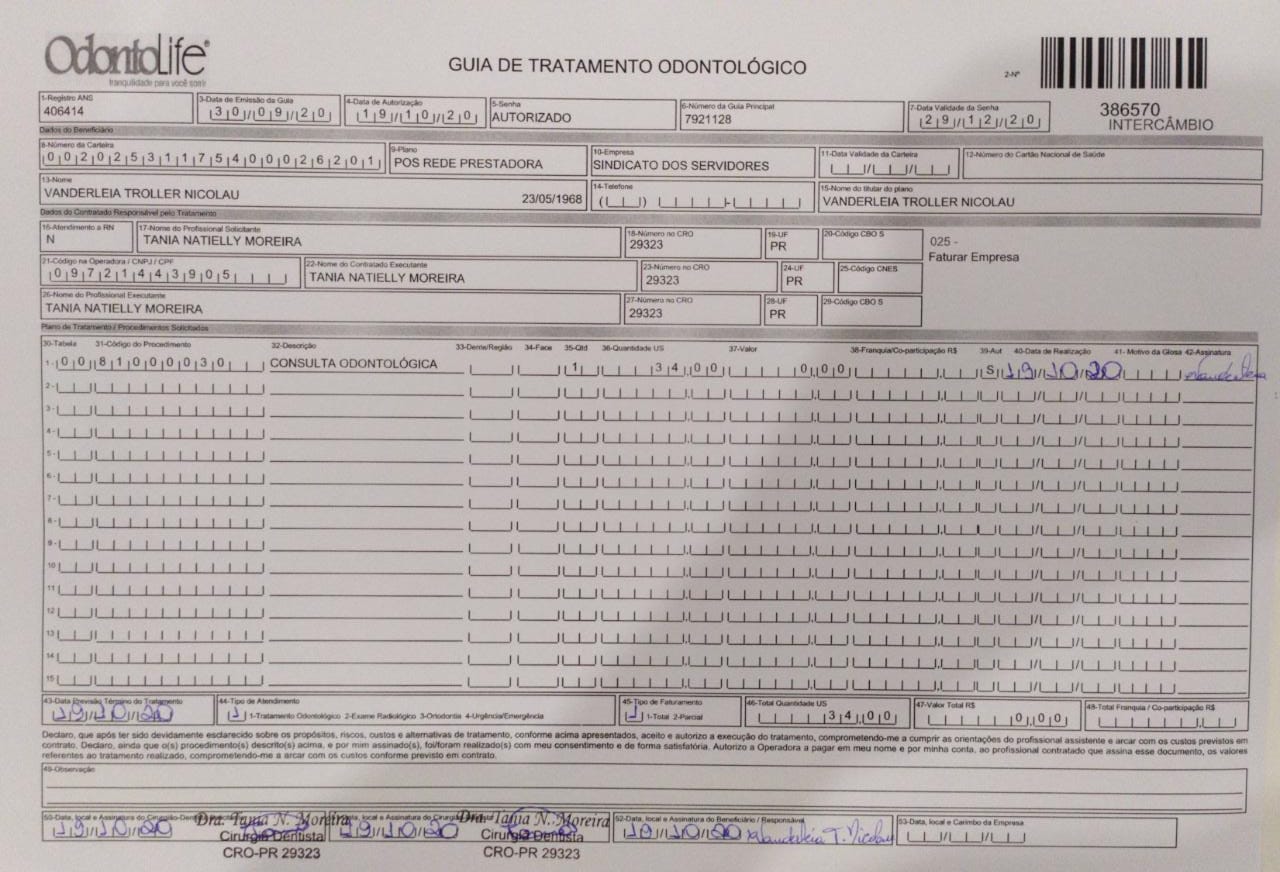 OdontoLife®
tranquilidade para você sorrir
GUIA DE TRATAMENTO ODONTOLÓGICO
2-Nº
386570
INTERCÂMBIO
1-Registro ANS
406414
3-Data de Emissão da Guia
30/09/20
4-Data de Autorização
19/10/20
5-Senha
AUTORIZADO
6-Número da Guia Principal
7921128
7-Data Validade da Senha
29/12/20
Dados do Beneficiário
8-Número da Carteira
00202531175400026201
9-Plano
POS REDE PRESTADORA
10-Empresa
SINDICATO DOS SERVIDORES
11-Data Validade da Carteira
12-Número do Cartão Nacional de Saúde
13-Nome
VANDERLEIA TROLLER NICOLAU 23/05/1968
14-Telefone
15-Nome do titular do plano
VANDERLEIA TROLLER NICOLAU
Dados do Contratado Responsável pelo Tratamento
16-Atendimento a RN
N
17-Nome do Profissional Solicitante
TANIA NATIELLY MOREIRA
18-Número no CRO
29323
19-UF
PR
20-Código CBO S
025 -
Faturar Empresa
21-Código na Operadora / CNPJ / CPF
09721443905
22-Nome do Contratado Executante
TANIA NATIELLY MOREIRA
23-Número no CRO
29323
24-UF
PR
25-Código CNES
26-Nome do Profissional Executante
TANIA NATIELLY MOREIRA
27-Número no CRO
29323
28-UF
PR
29-Código CBO S
Plano de Tratamento / Procedimentos Solicitados
30-Tabela 31-Código do Procedimento 32-Descrição 33-Dente/Região 34-Face 35-Qtd 36-Quantidade US 37-Valor 38-Franquia/Co-participação R$ 39-Aut 40-Data de Realização 41- Motivo da Glosa 42-Assinatura
1- 00 81000030 CONSULTA ODONTOLÓGICA 1 34,00 0,00 S 19/10/20 Vanderleia
2-
3-
4-
5-
6-
7-
8-
9-
10
11
12
13
14
15
43-Data Previsão Término do Tratamento
19/10/20
44-Tipo de Atendimento
1 1-Tratamento Odontológico 2-Exame Radiológico 3-Ortodontia 4-Urgência/Emergência
45-Tipo de Faturamento
1 1-Total 2-Parcial
46-Total Quantidade US
34,00
47-Valor Total R$
0,00
48-Total Franquia / Co-participação R$
Declaro, que após ter sido devidamente esclarecido sobre os propósitos, riscos, custos e alternativas de tratamento, conforme acima apresentados, aceito e autorizo a execução do tratamento, comprometendo-me a cumprir as orientações do profissional assistente e arcar com os custos previstos em
contrato. Declaro, ainda que o(s) procedimento(s) descrito(s) acima, e por mim assinado(s), foi/foram realizado(s) com meu consentimento e de forma satisfatória. Autorizo a Operadora a pagar em meu nome e por minha conta, ao profissional contratado que assina esse documento, os valores
referentes ao tratamento realizado, comprometendo-me a arcar com os custos conforme previsto em contrato.
49-Observação
50-Data, local e Assinatura do Cirurgião-Dentista
19/10/20
Dra. Tania N. Moreira
Cirurgiã Dentista
CRO-PR 29323
local e Assinatura do Cirurgião
19/10/20
Dra. Tania N. Moreira
Cirurgiã Dentista
CRO-PR 29323
52-Data, local e Assinatura do Beneficiário / Responsável
19/10/20 Vanderleia T. Nicolau
53-Data, local e Carimbo da Empresa